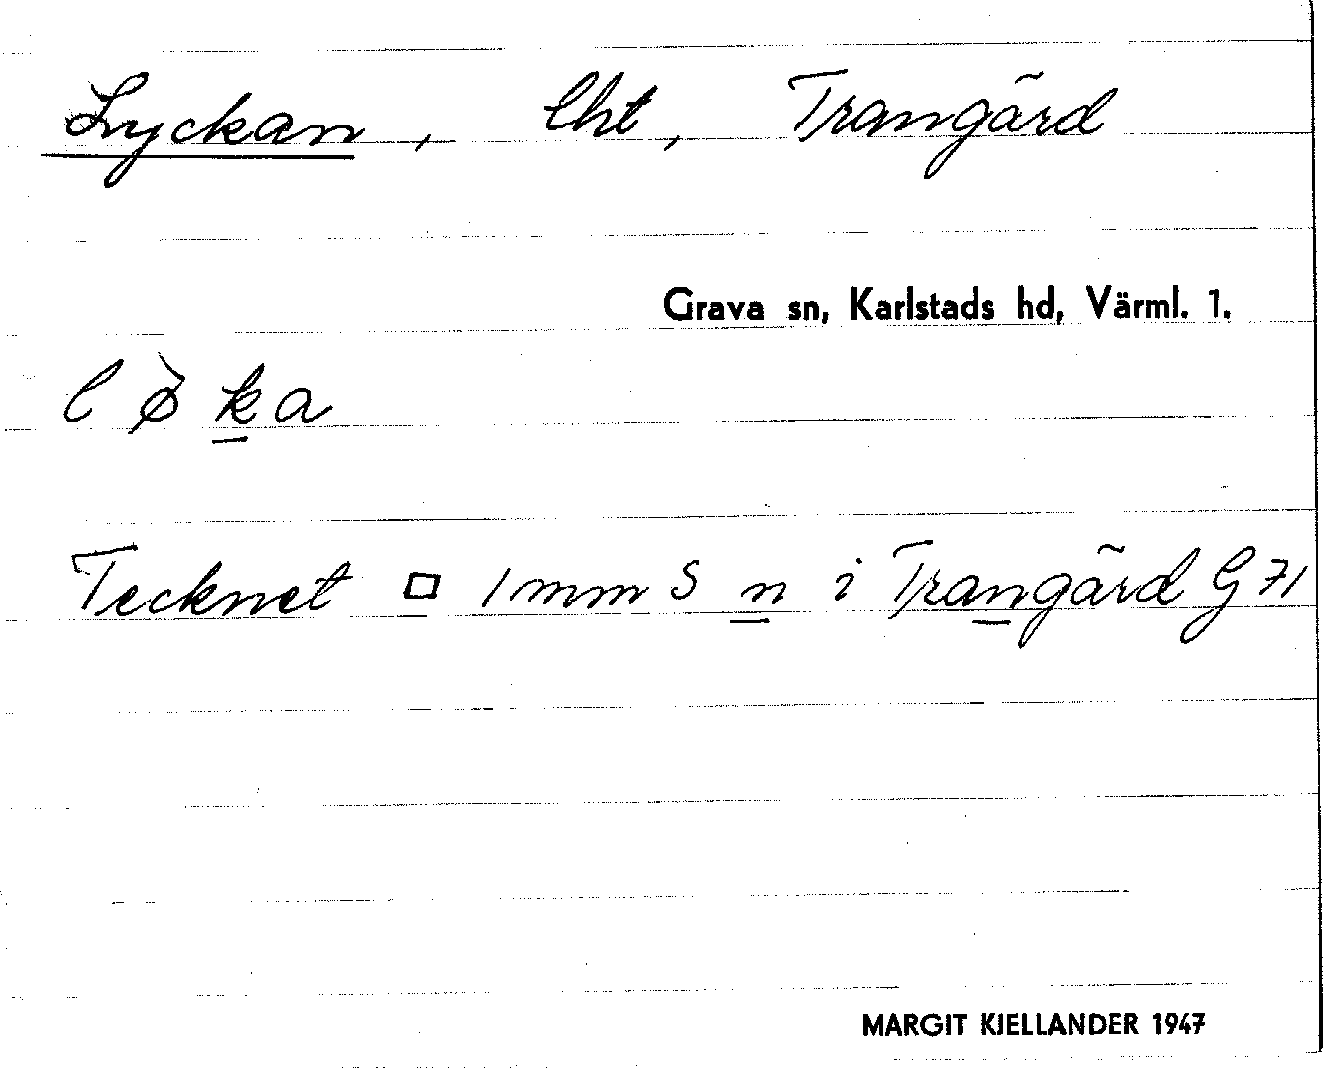 Lyckan, lht, Trangärd
Grava sn, Karlstads hd, Värml. 1.
l ø̀ k̲a
Tecknet □ 1 mm S n̲ i Tran̲gärd G 71
MARGIT KJELLANDER 1947